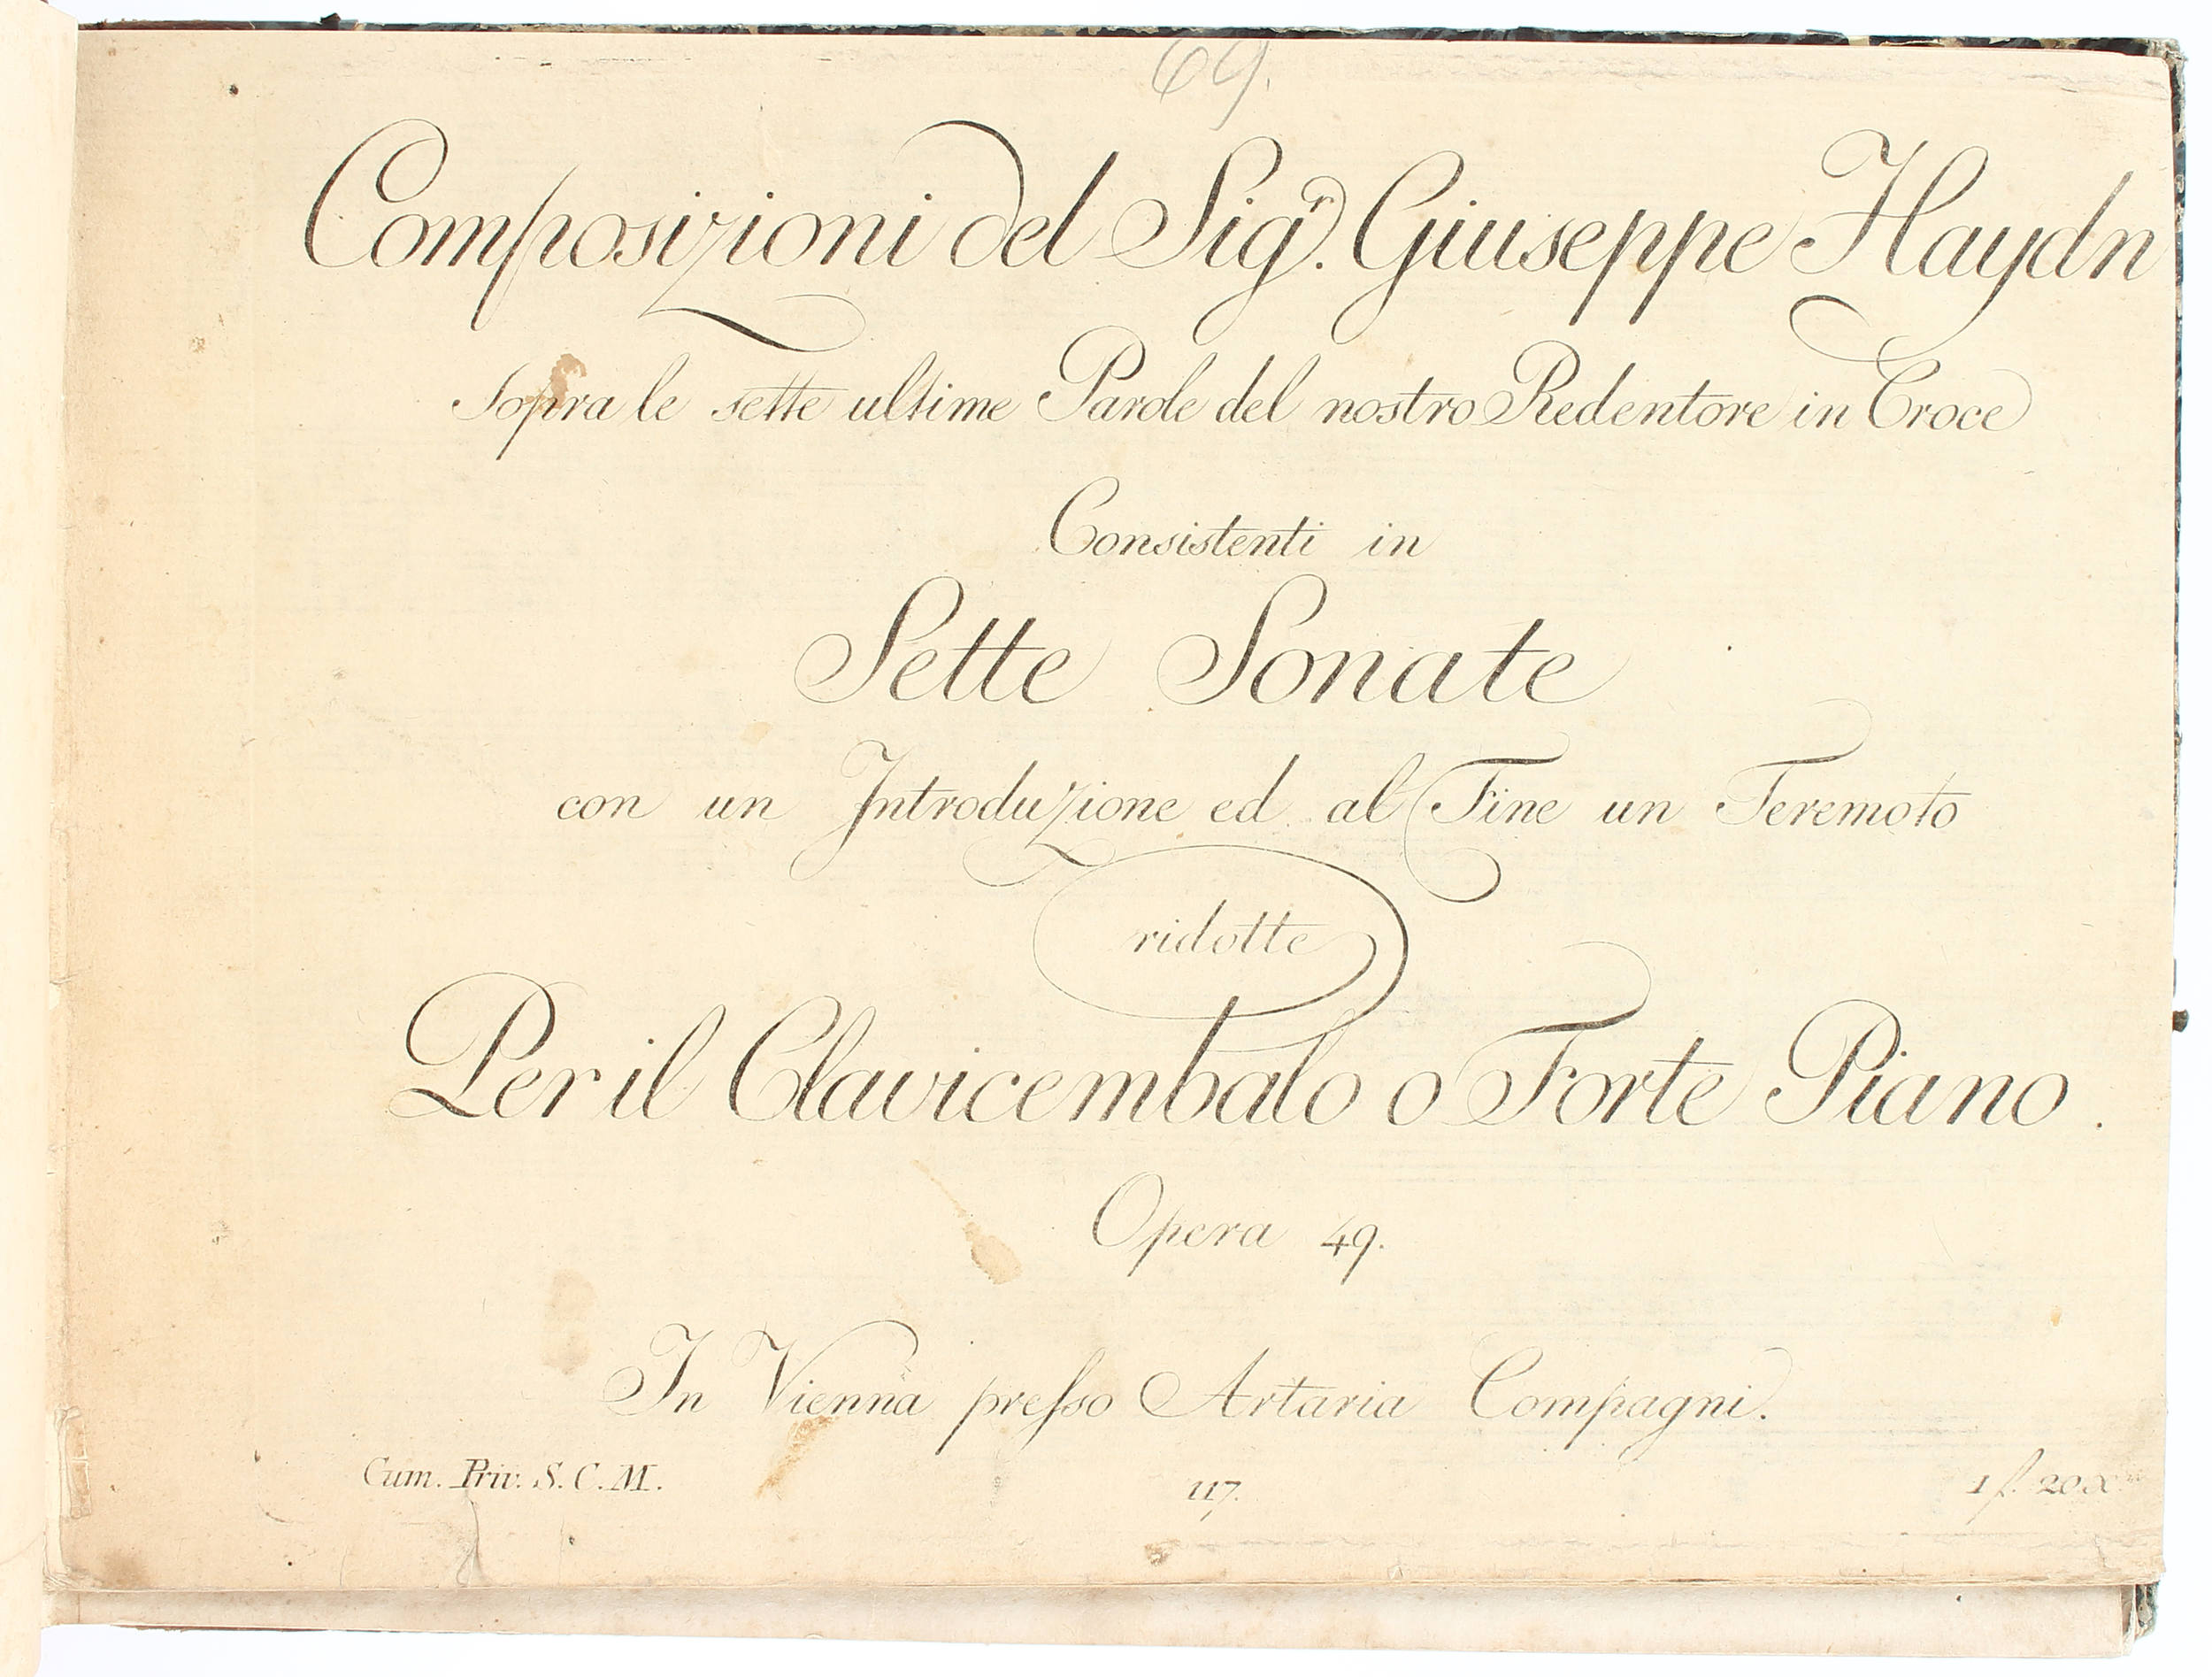 69.
Composizioni del Sigr. Giuseppe Haydn
Sopra le sette ultime Parole del nostro Redentore in Croce
Consistenti in
Sette Sonate
con un Introduzione ed al Fine un Teremoto
ridotte
Per il Clavicembalo o Forte Piano.
Opera 49.
In Vienna presso Artaria Compagni.
Cum. Priv. S. C. M. 117. 1 f. 20 x